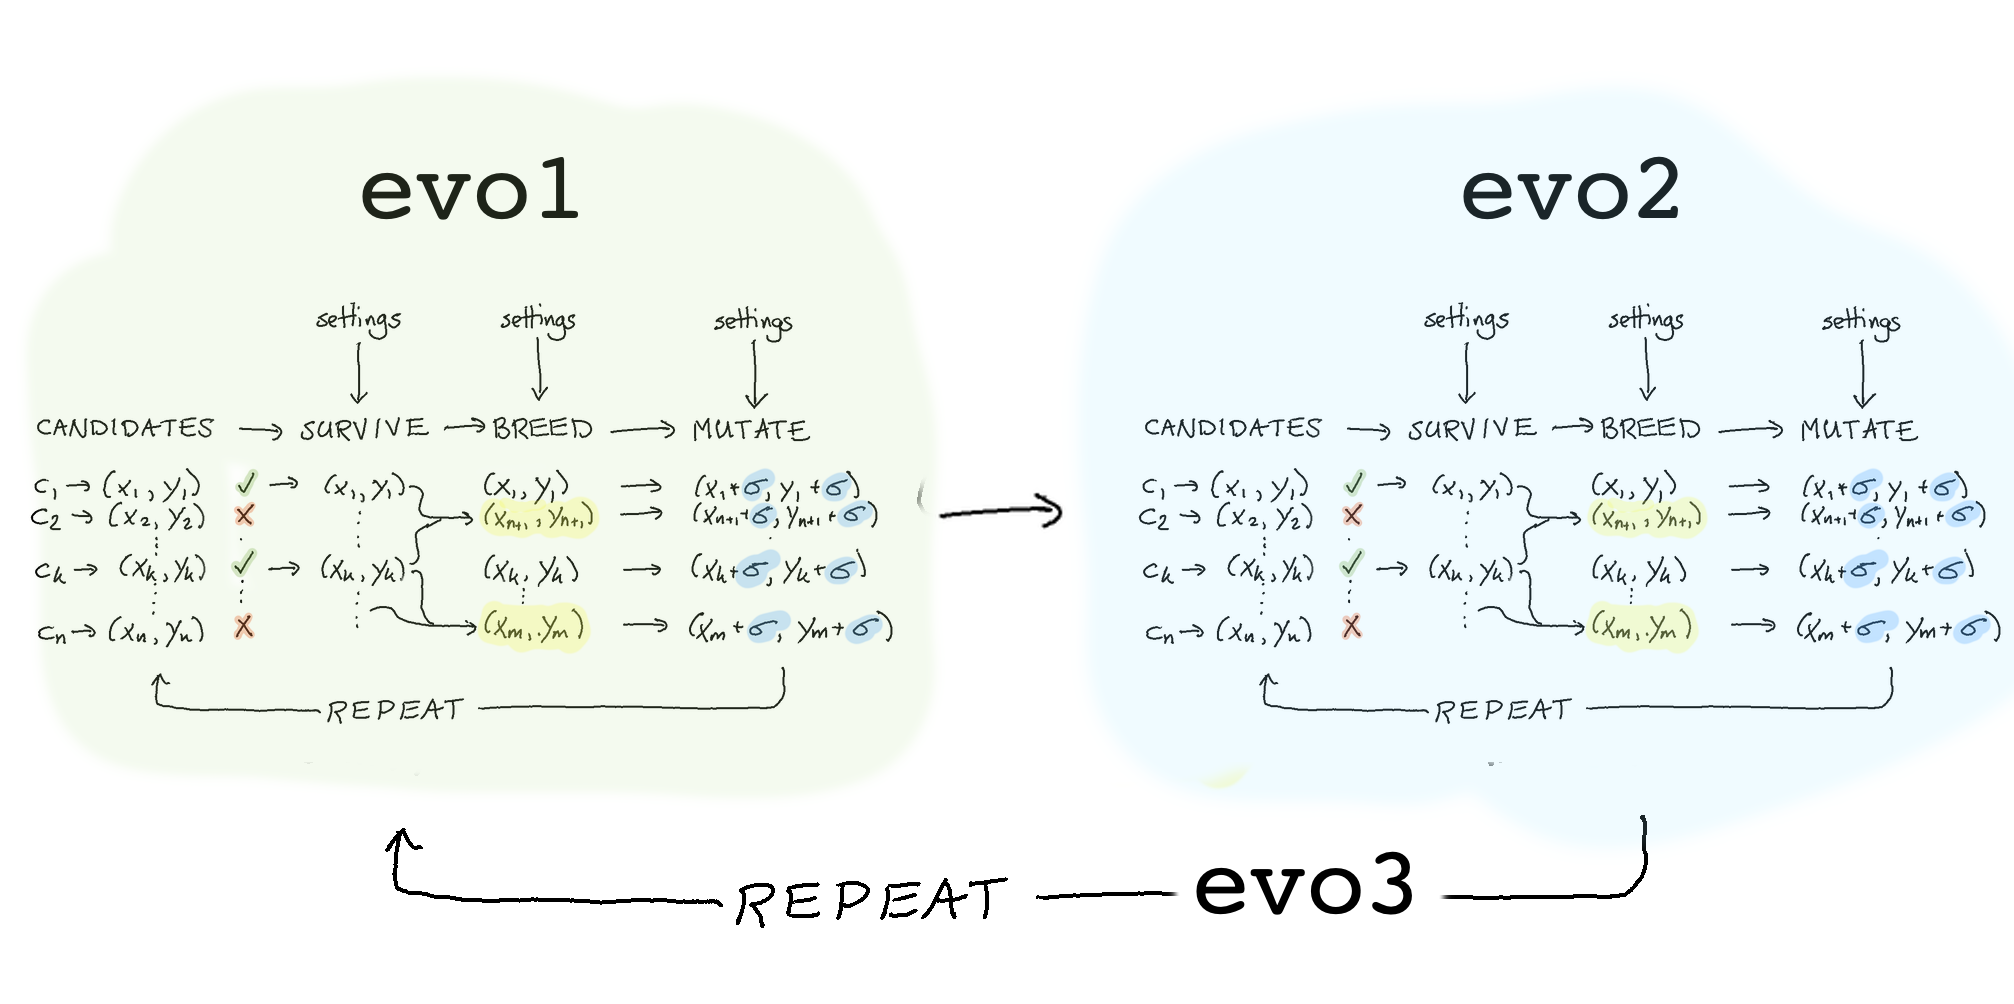 evo1
settings settings settings
CANDIDATES → SURVIVE → BREED → MUTATE
c₁ → (x₁, y₁) ✓ → (x₁, y₁) (x₁, y₁) → (x₁+σ, y₁+σ)
c₂ → (x₂, y₂) ✗ (xₙ₊₁, yₙ₊₁) → (xₙ₊₁+σ, yₙ₊₁+σ)
cₖ → (xₖ, yₖ) ✓ → (xₖ, yₖ) (xₖ, yₖ) → (xₖ+σ, yₖ+σ)
cₙ → (xₙ, yₙ) ✗ (xₘ, yₘ) → (xₘ+σ, yₘ+σ)
REPEAT
evo2
settings settings settings
CANDIDATES → SURVIVE → BREED → MUTATE
c₁ → (x₁, y₁) ✓ → (x₁, y₁) (x₁, y₁) → (x₁+σ, y₁+σ)
c₂ → (x₂, y₂) ✗ (xₙ₊₁, yₙ₊₁) → (xₙ₊₁+σ, yₙ₊₁+σ)
cₖ → (xₖ, yₖ) ✓ → (xₖ, yₖ) (xₖ, yₖ) → (xₖ+σ, yₖ+σ)
cₙ → (xₙ, yₙ) ✗ (xₘ, yₘ) → (xₘ+σ, yₘ+σ)
REPEAT
REPEAT evo3